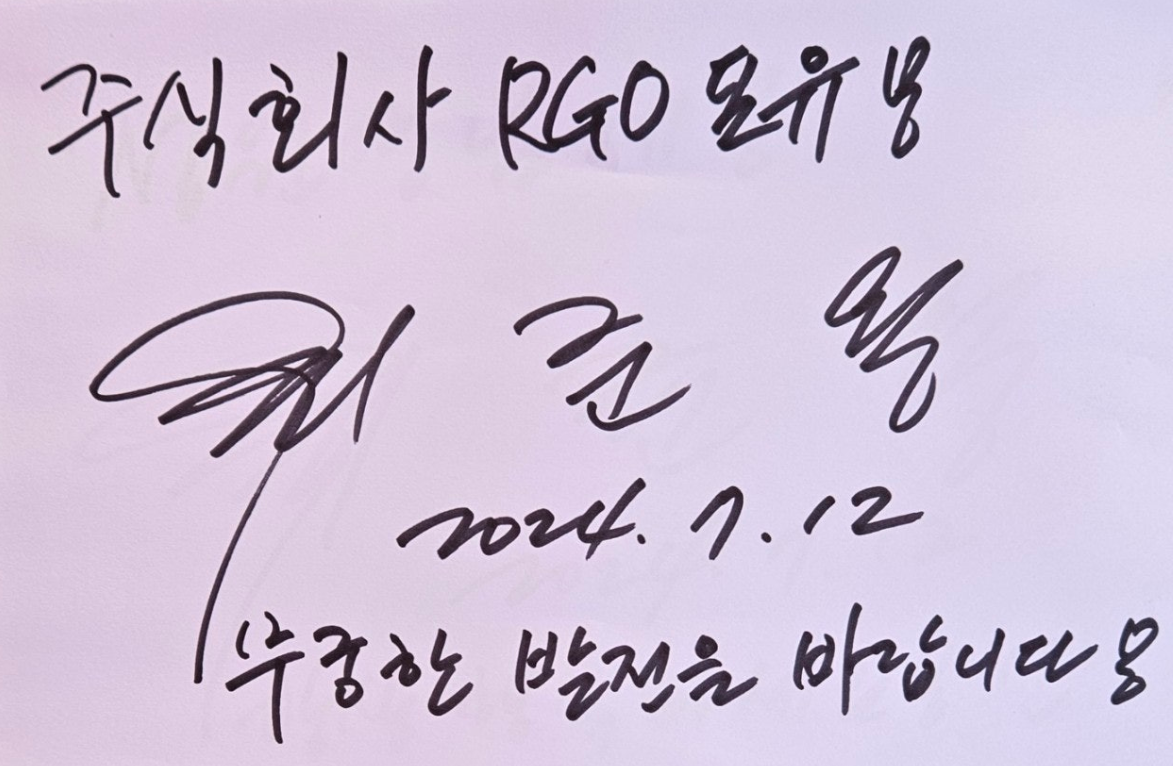 주식회사 RGO
2024. 7. 12
무궁한 발전을 바랍니다